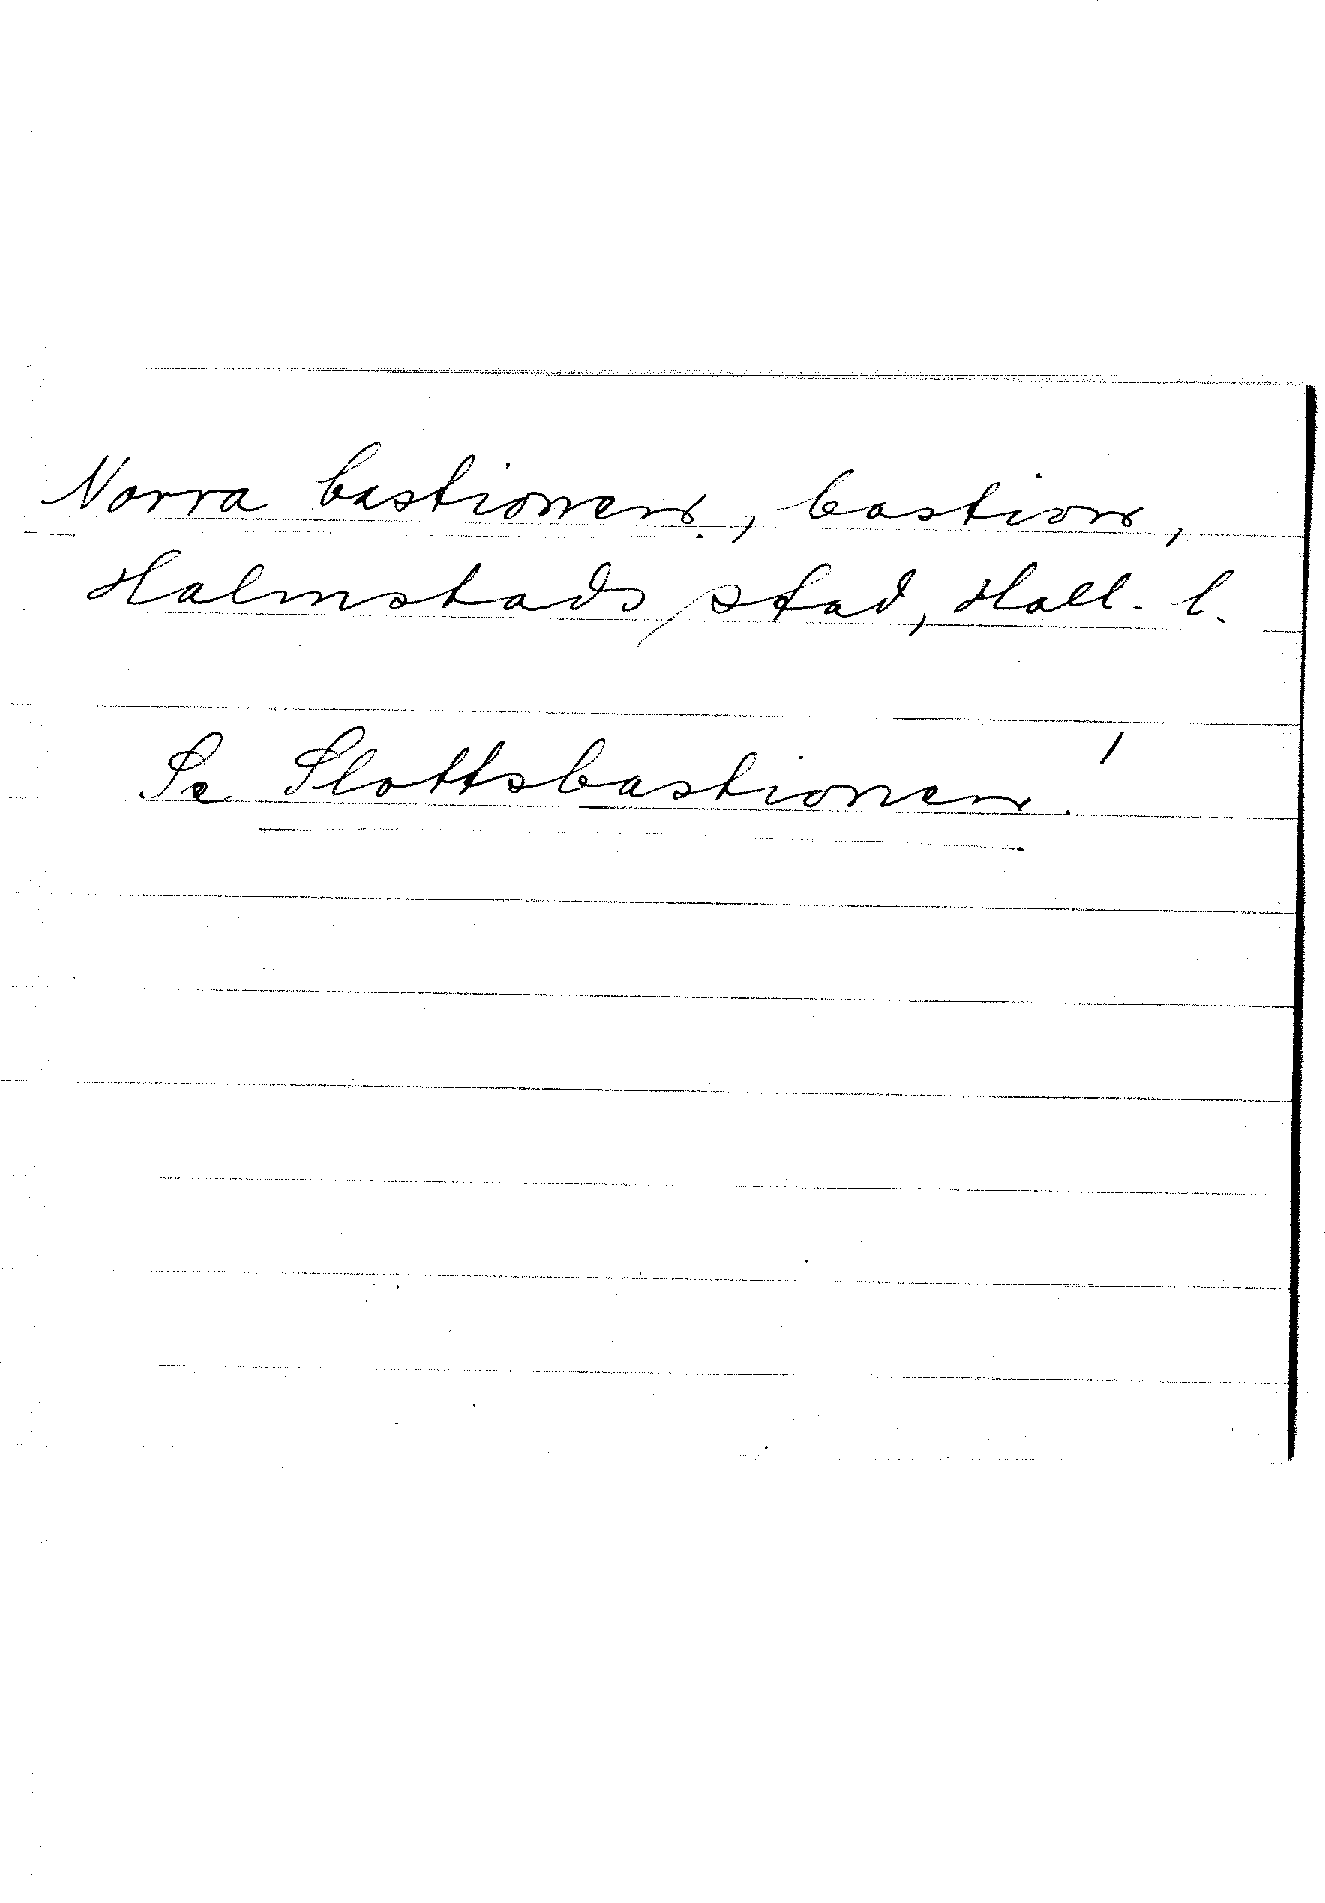 Norra bastionen, bastion,
Halmstads stad, Hall. l.
Se Slottsbastionen!